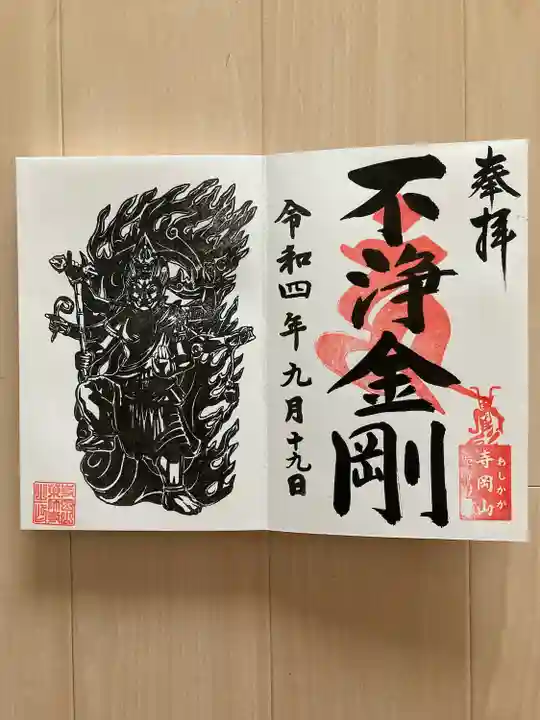 奉拝
不浄金剛
令和四年九月十九日
あしかが
寺岡山